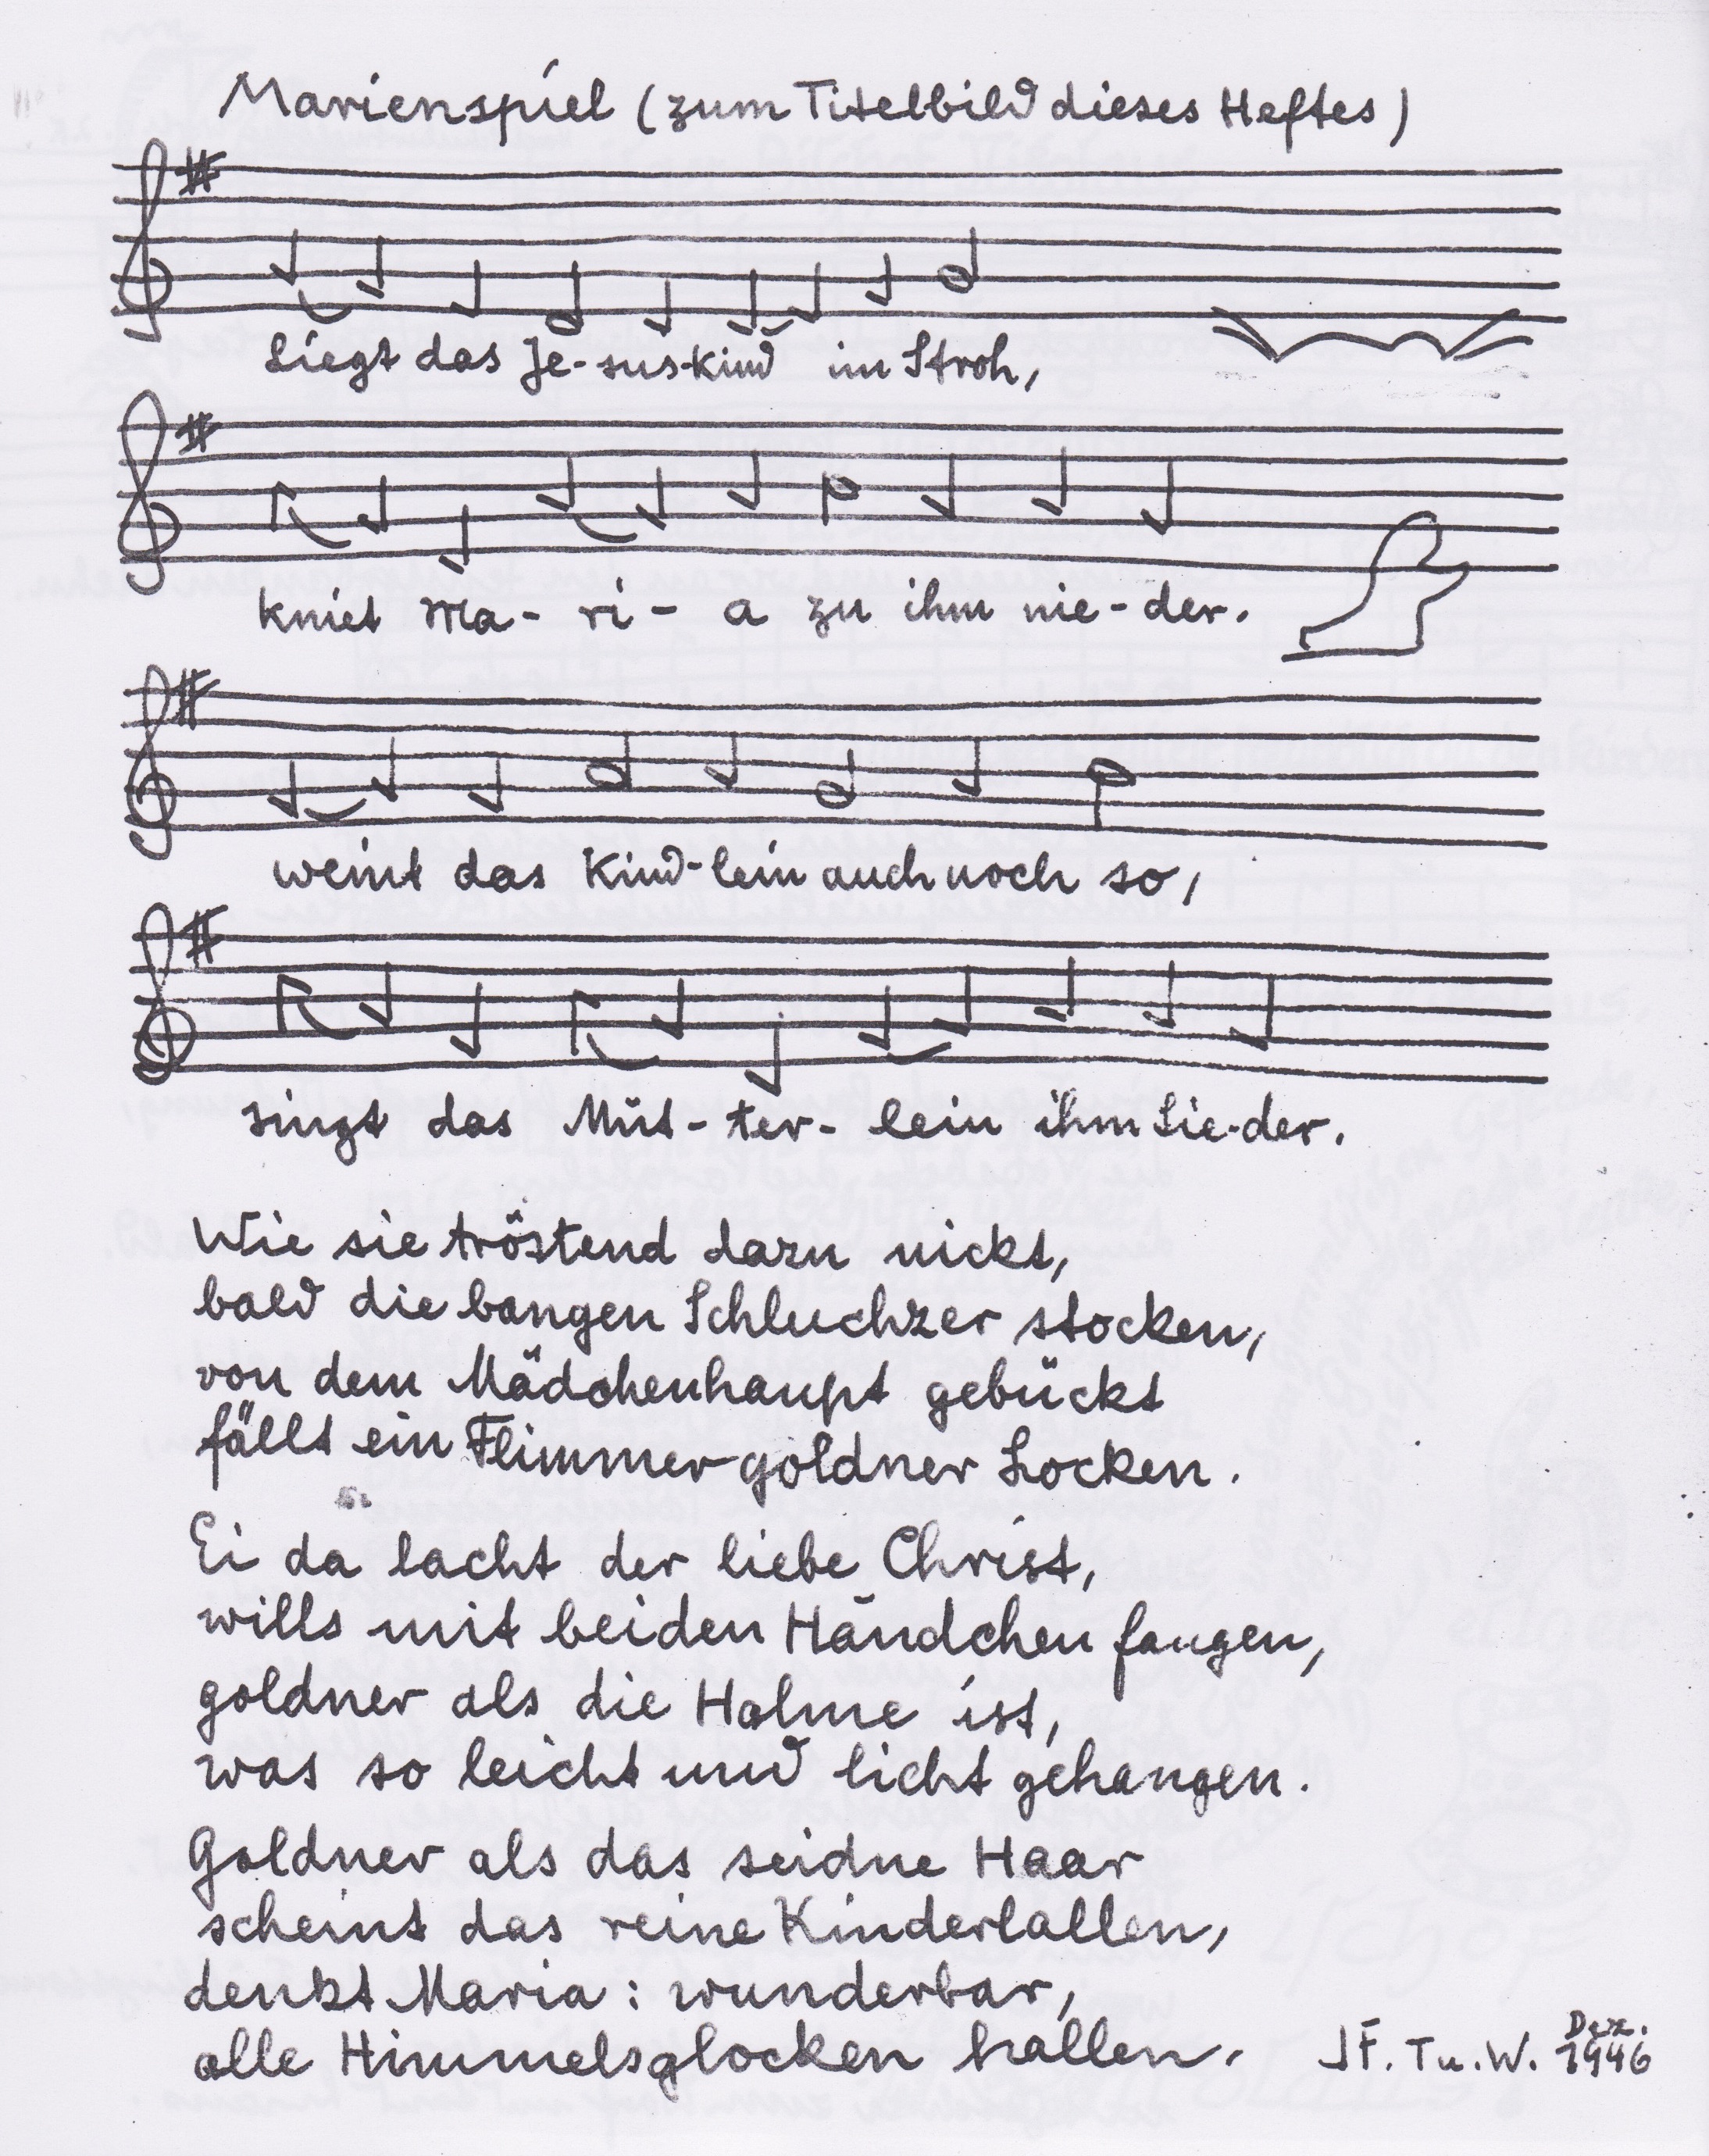 Marienspiel (zum Titelbild dieses Heftes)
Liegt das Je-sus-kind im Stroh,
kniet Ma-ri-a zu ihm nie-der.
weint das Kind-lein auch noch so,
singt das Müt-ter-lein ihm Lie-der.
Wie sie tröstend dazu nickt,
bald die bangen Schluchzer stocken,
von dem Mädchenhaupt gebückt
fällt ein Flimmer goldner Locken.
Ei da lacht der liebe Christ,
wills mit beiden Händchen fangen,
goldner als die Halme ist,
was so leicht und licht gehangen.
Goldner als das seidne Haar
scheint das reine Kinderlallen,
denkt Maria: wunderbar,
alle Himmelsglocken hallen.
F. Tu. W. Dez. 1946